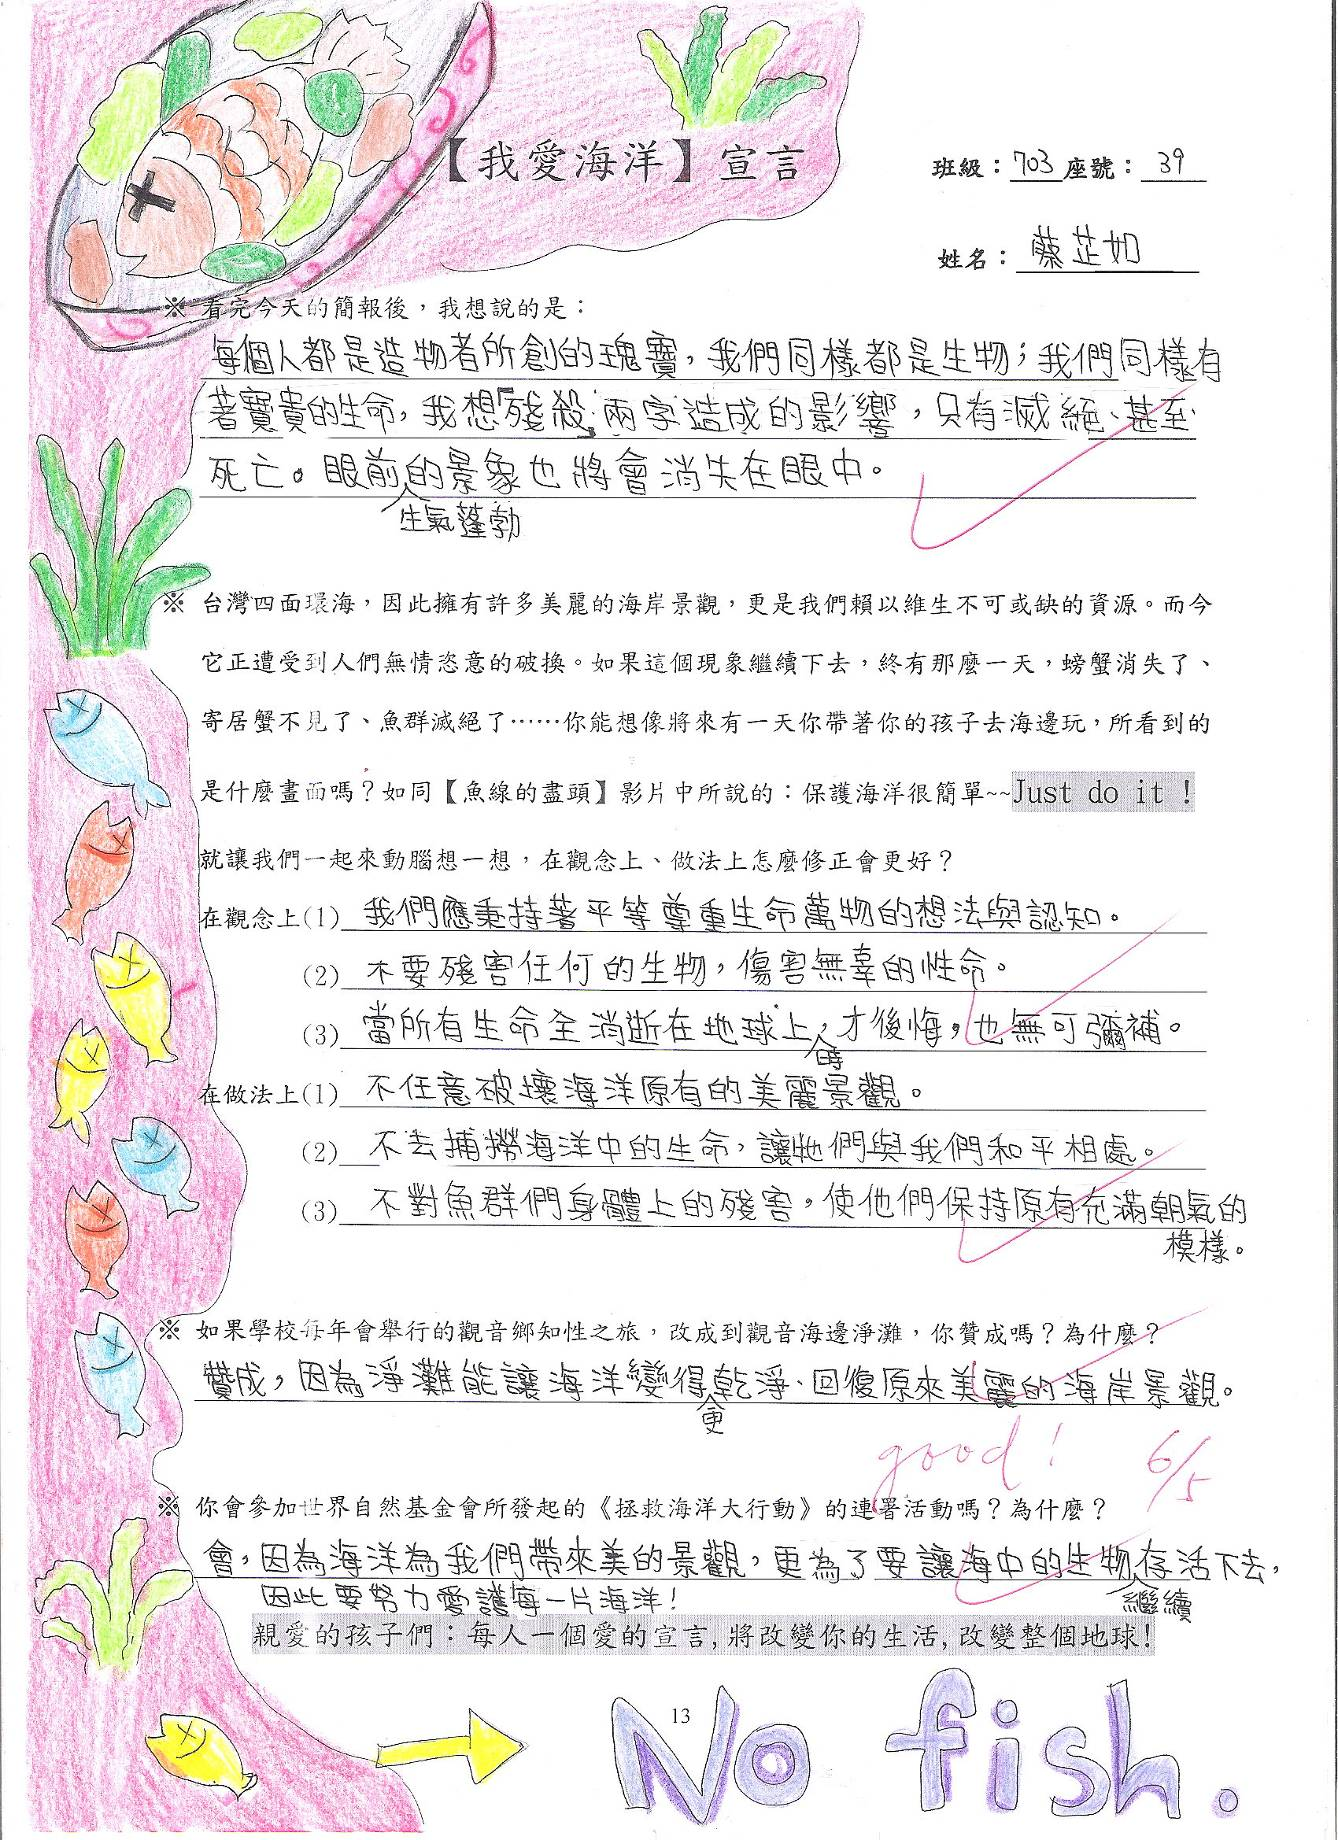 【我愛海洋】宣言
班級：703 座號：39
姓名：蔡芷如
※ 看完今天的簡報後，我想說的是：
每個人都是造物者所創的瑰寶，我們同樣都是生物；我們同樣有
著寶貴的生命，我想「殘殺」兩字造成的影響，只有滅絕、甚至
死亡。眼前的景象也將會消失在眼中。
生氣蓬勃
※ 台灣四面環海，因此擁有許多美麗的海岸景觀，更是我們賴以維生不可或缺的資源。而今
它正遭受到人們無情恣意的破換。如果這個現象繼續下去，終有那麼一天，螃蟹消失了、
寄居蟹不見了、魚群滅絕了……你能想像將來有一天你帶著你的孩子去海邊玩，所看到的
是什麼畫面嗎？如同【魚線的盡頭】影片中所說的：保護海洋很簡單~~Just do it !
就讓我們一起來動腦想一想，在觀念上、做法上怎麼修正會更好？
在觀念上(1) 我們應秉持著平等尊重生命萬物的想法與認知。
(2) 不要殘害任何的生物，傷害無辜的性命。
(3) 當所有生命全消逝在地球上，才後悔，也無可彌補。
時
在做法上(1) 不任意破壞海洋原有的美麗景觀。
(2) 不去捕撈海洋中的生命，讓牠們與我們和平相處。
(3) 不對魚群們身體上的殘害，使他們保持原有充滿朝氣的
模樣。
※ 如果學校每年會舉行的觀音鄉知性之旅，改成到觀音海邊淨灘，你贊成嗎？為什麼？
贊成，因為淨灘能讓海洋變得乾淨、回復原來美麗的海岸景觀。
更
good! 6/5
※ 你會參加世界自然基金會所發起的《拯救海洋大行動》的連署活動嗎？為什麼？
會，因為海洋為我們帶來美的景觀，更為了要讓海中的生物存活下去，
繼續
因此要努力愛護每一片海洋！
親愛的孩子們：每人一個愛的宣言,將改變你的生活,改變整個地球!
13
No fish.